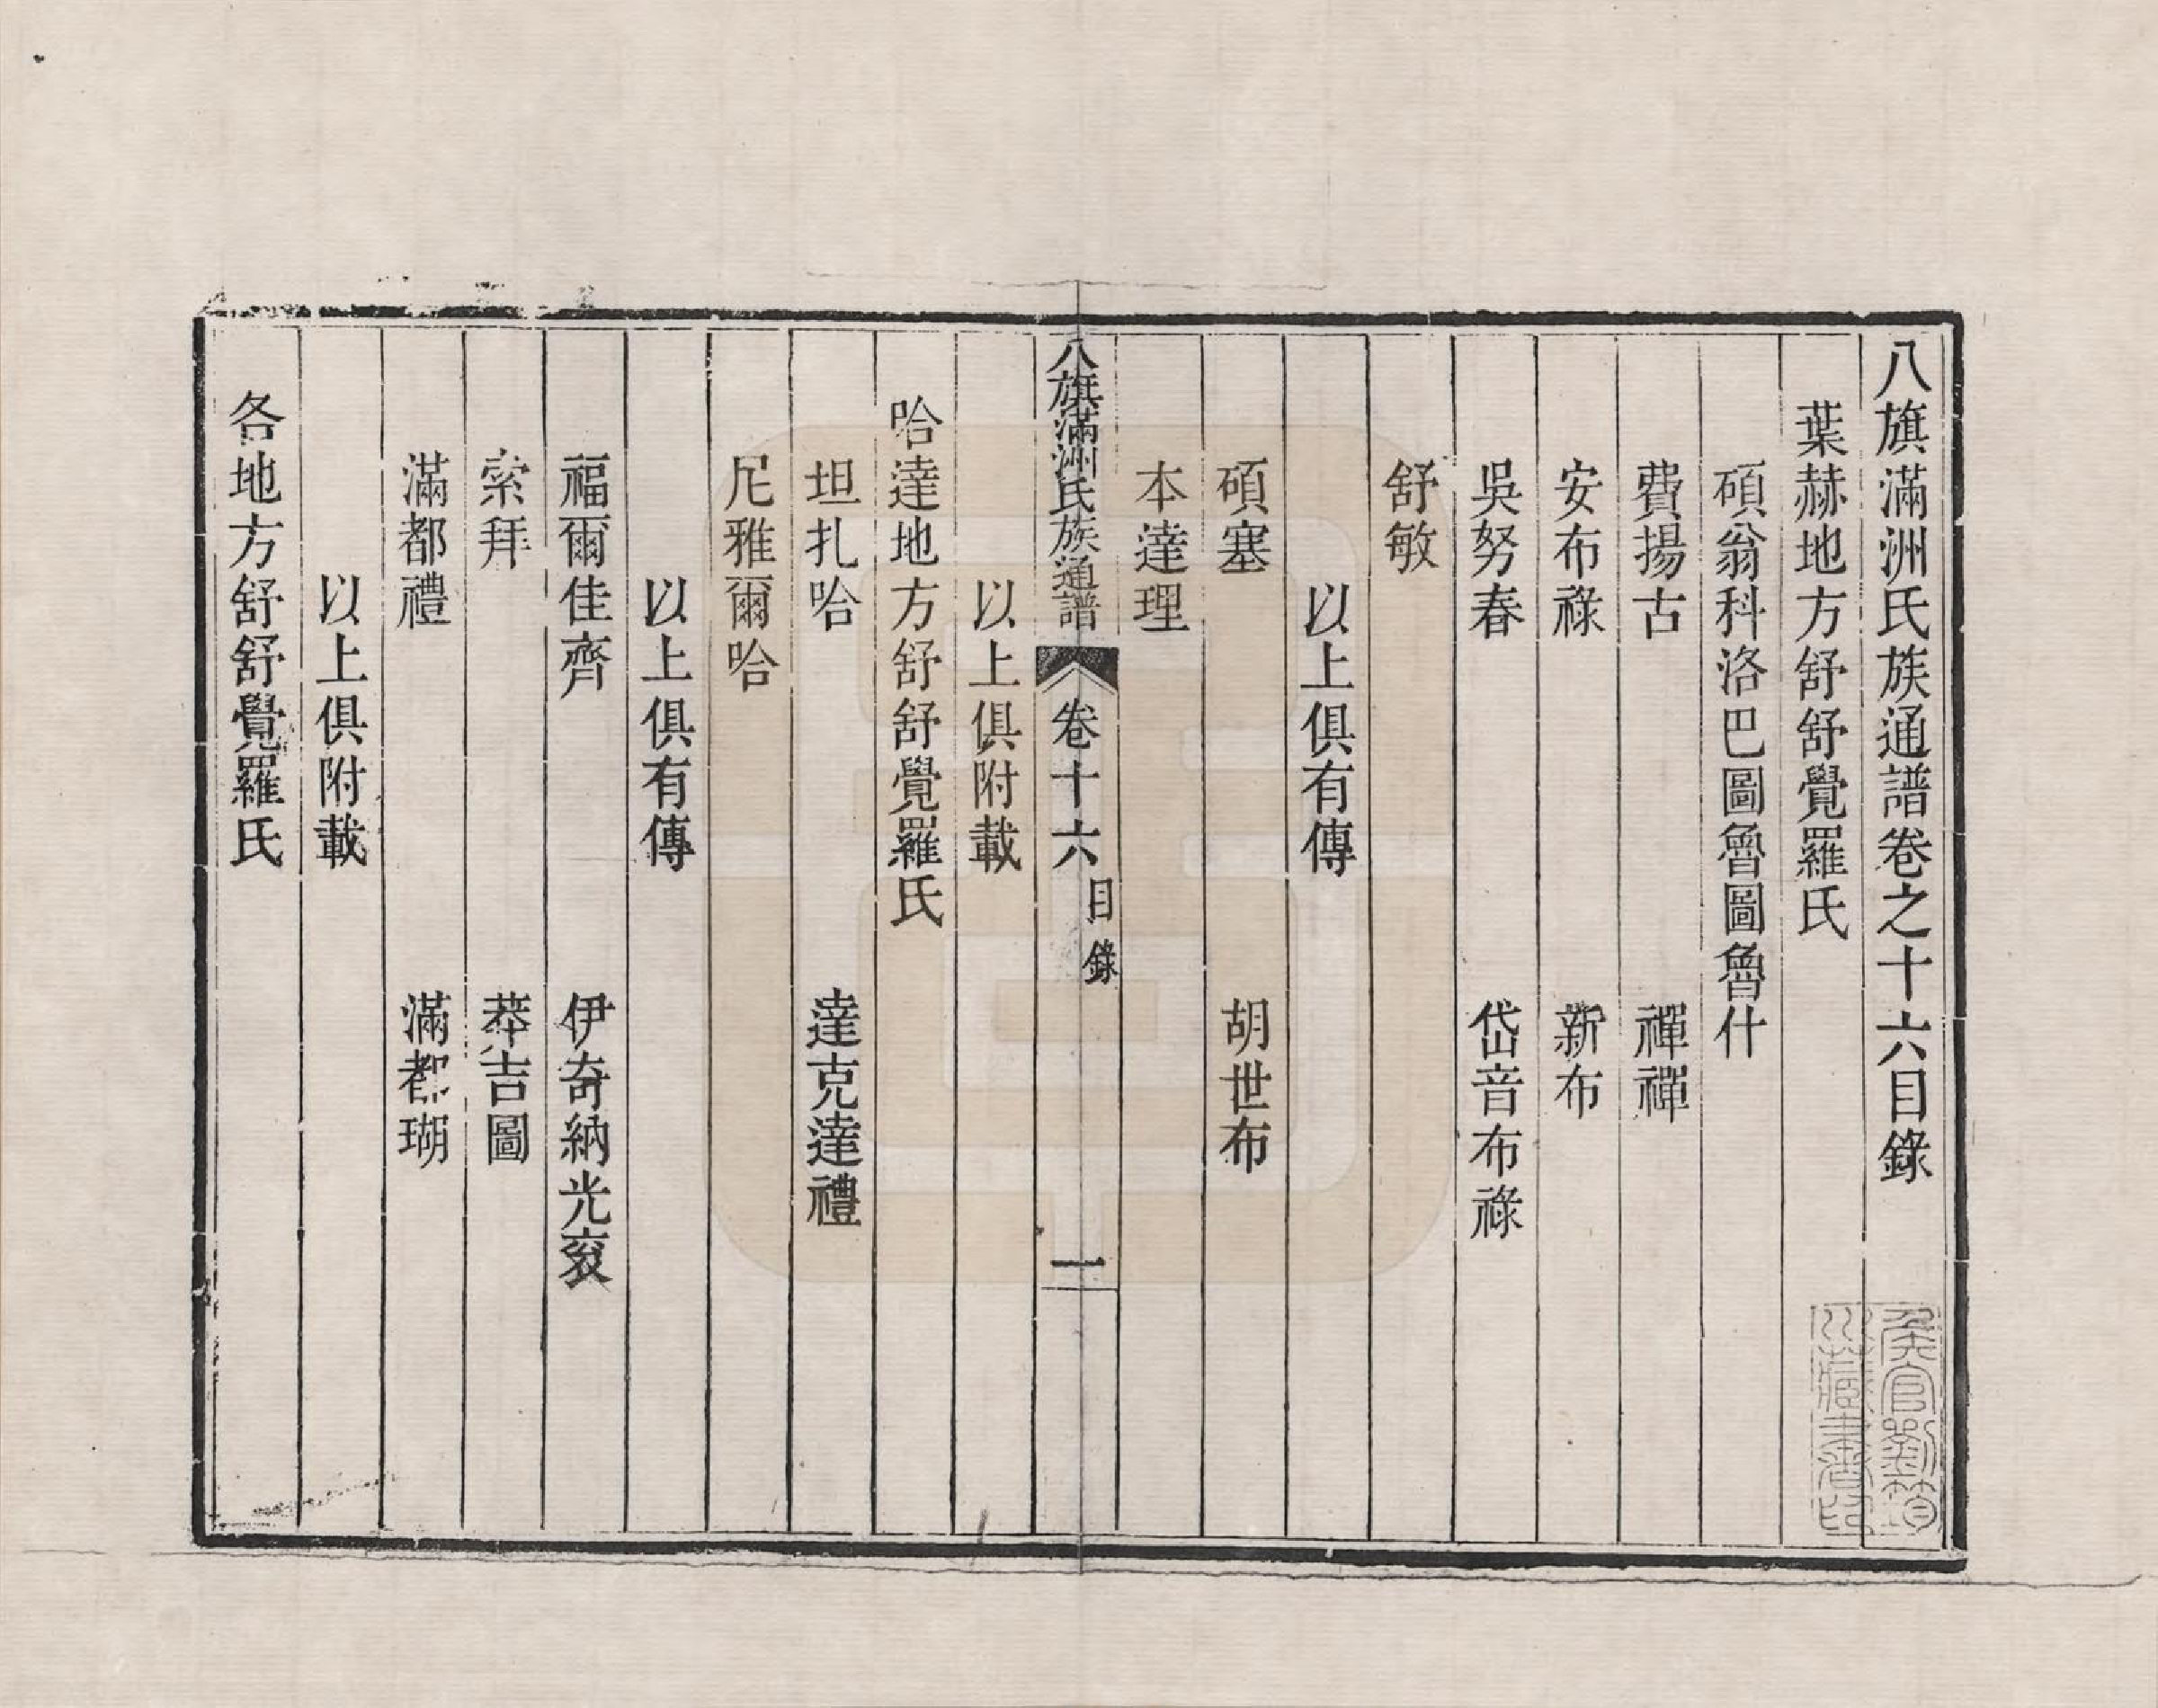 八旗滿洲氏族通譜卷之十六目錄
葉赫地方舒舒覺羅氏
碩翁科洛巴圖魯圖魯什
費揚古　禪禪
安布祿　新布
吳努春　岱音布祿
舒敏
以上俱有傳
碩塞　胡世布
本達理
八旗滿洲氏族通譜　卷十六　目錄　一
以上俱附載
哈達地方舒舒覺羅氏
坦扎哈　達克達禮
尼雅爾哈
以上俱有傳
福爾佳齊　伊奇納光袞
索拜　莽吉圖
滿都禮　滿都瑚
以上俱附載
各地方舒舒覺羅氏
侯官劉筠
川藏書書印